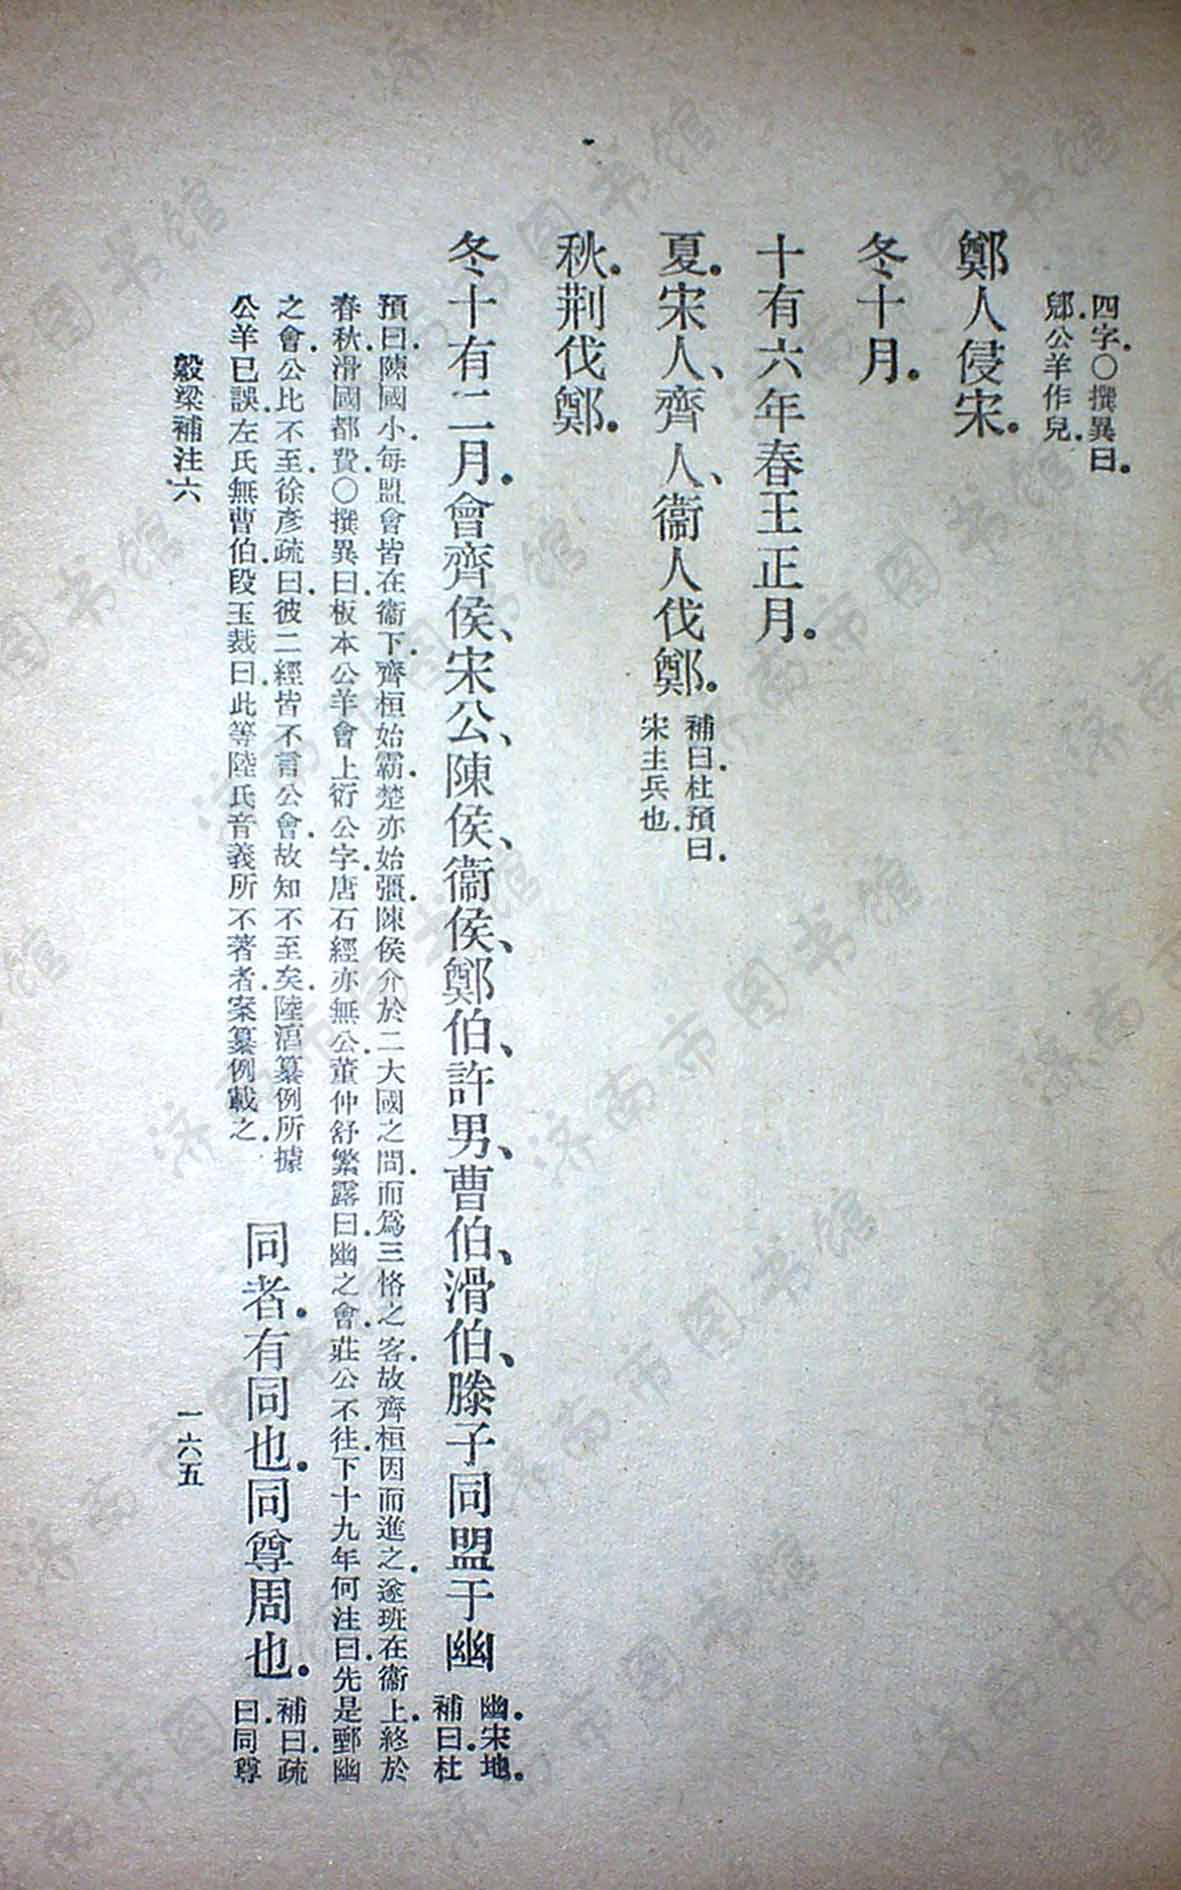 四字。〇撰異曰。
郳。公羊作兒。
鄭人侵宋。
冬十月。
十有六年春王正月。
夏。宋人、齊人、衞人伐鄭。
補曰。杜預曰。
宋主兵也。
秋。荆伐鄭。
冬十有二月。會齊侯、宋公、陳侯、衞侯、鄭伯、許男、曹伯、滑伯、滕子同盟于幽
幽。宋地。
補曰。杜
預曰。陳國小。每盟會皆在衞下。齊桓始霸。楚亦始彊。陳侯介於二大國之間。而爲三恪之客。故齊桓因而進之。遂班在衞上。終於
春秋。滑國都費。〇撰異曰。板本公羊會上衍公字。唐石經亦無公。董仲舒繁露曰。幽之會。莊公不往。下十九年何注曰。先是鄄幽
之會。公比不至。徐彥疏曰。彼二經皆不言公會。故知不至矣。陸淳纂例所據
公羊已誤。左氏無曹伯。段玉裁曰。此等陸氏音義所不著者。案纂例載之。
同者。有同也。同尊周也。
補曰。疏
曰。同尊
穀梁補注六
一六五
济南市图书馆